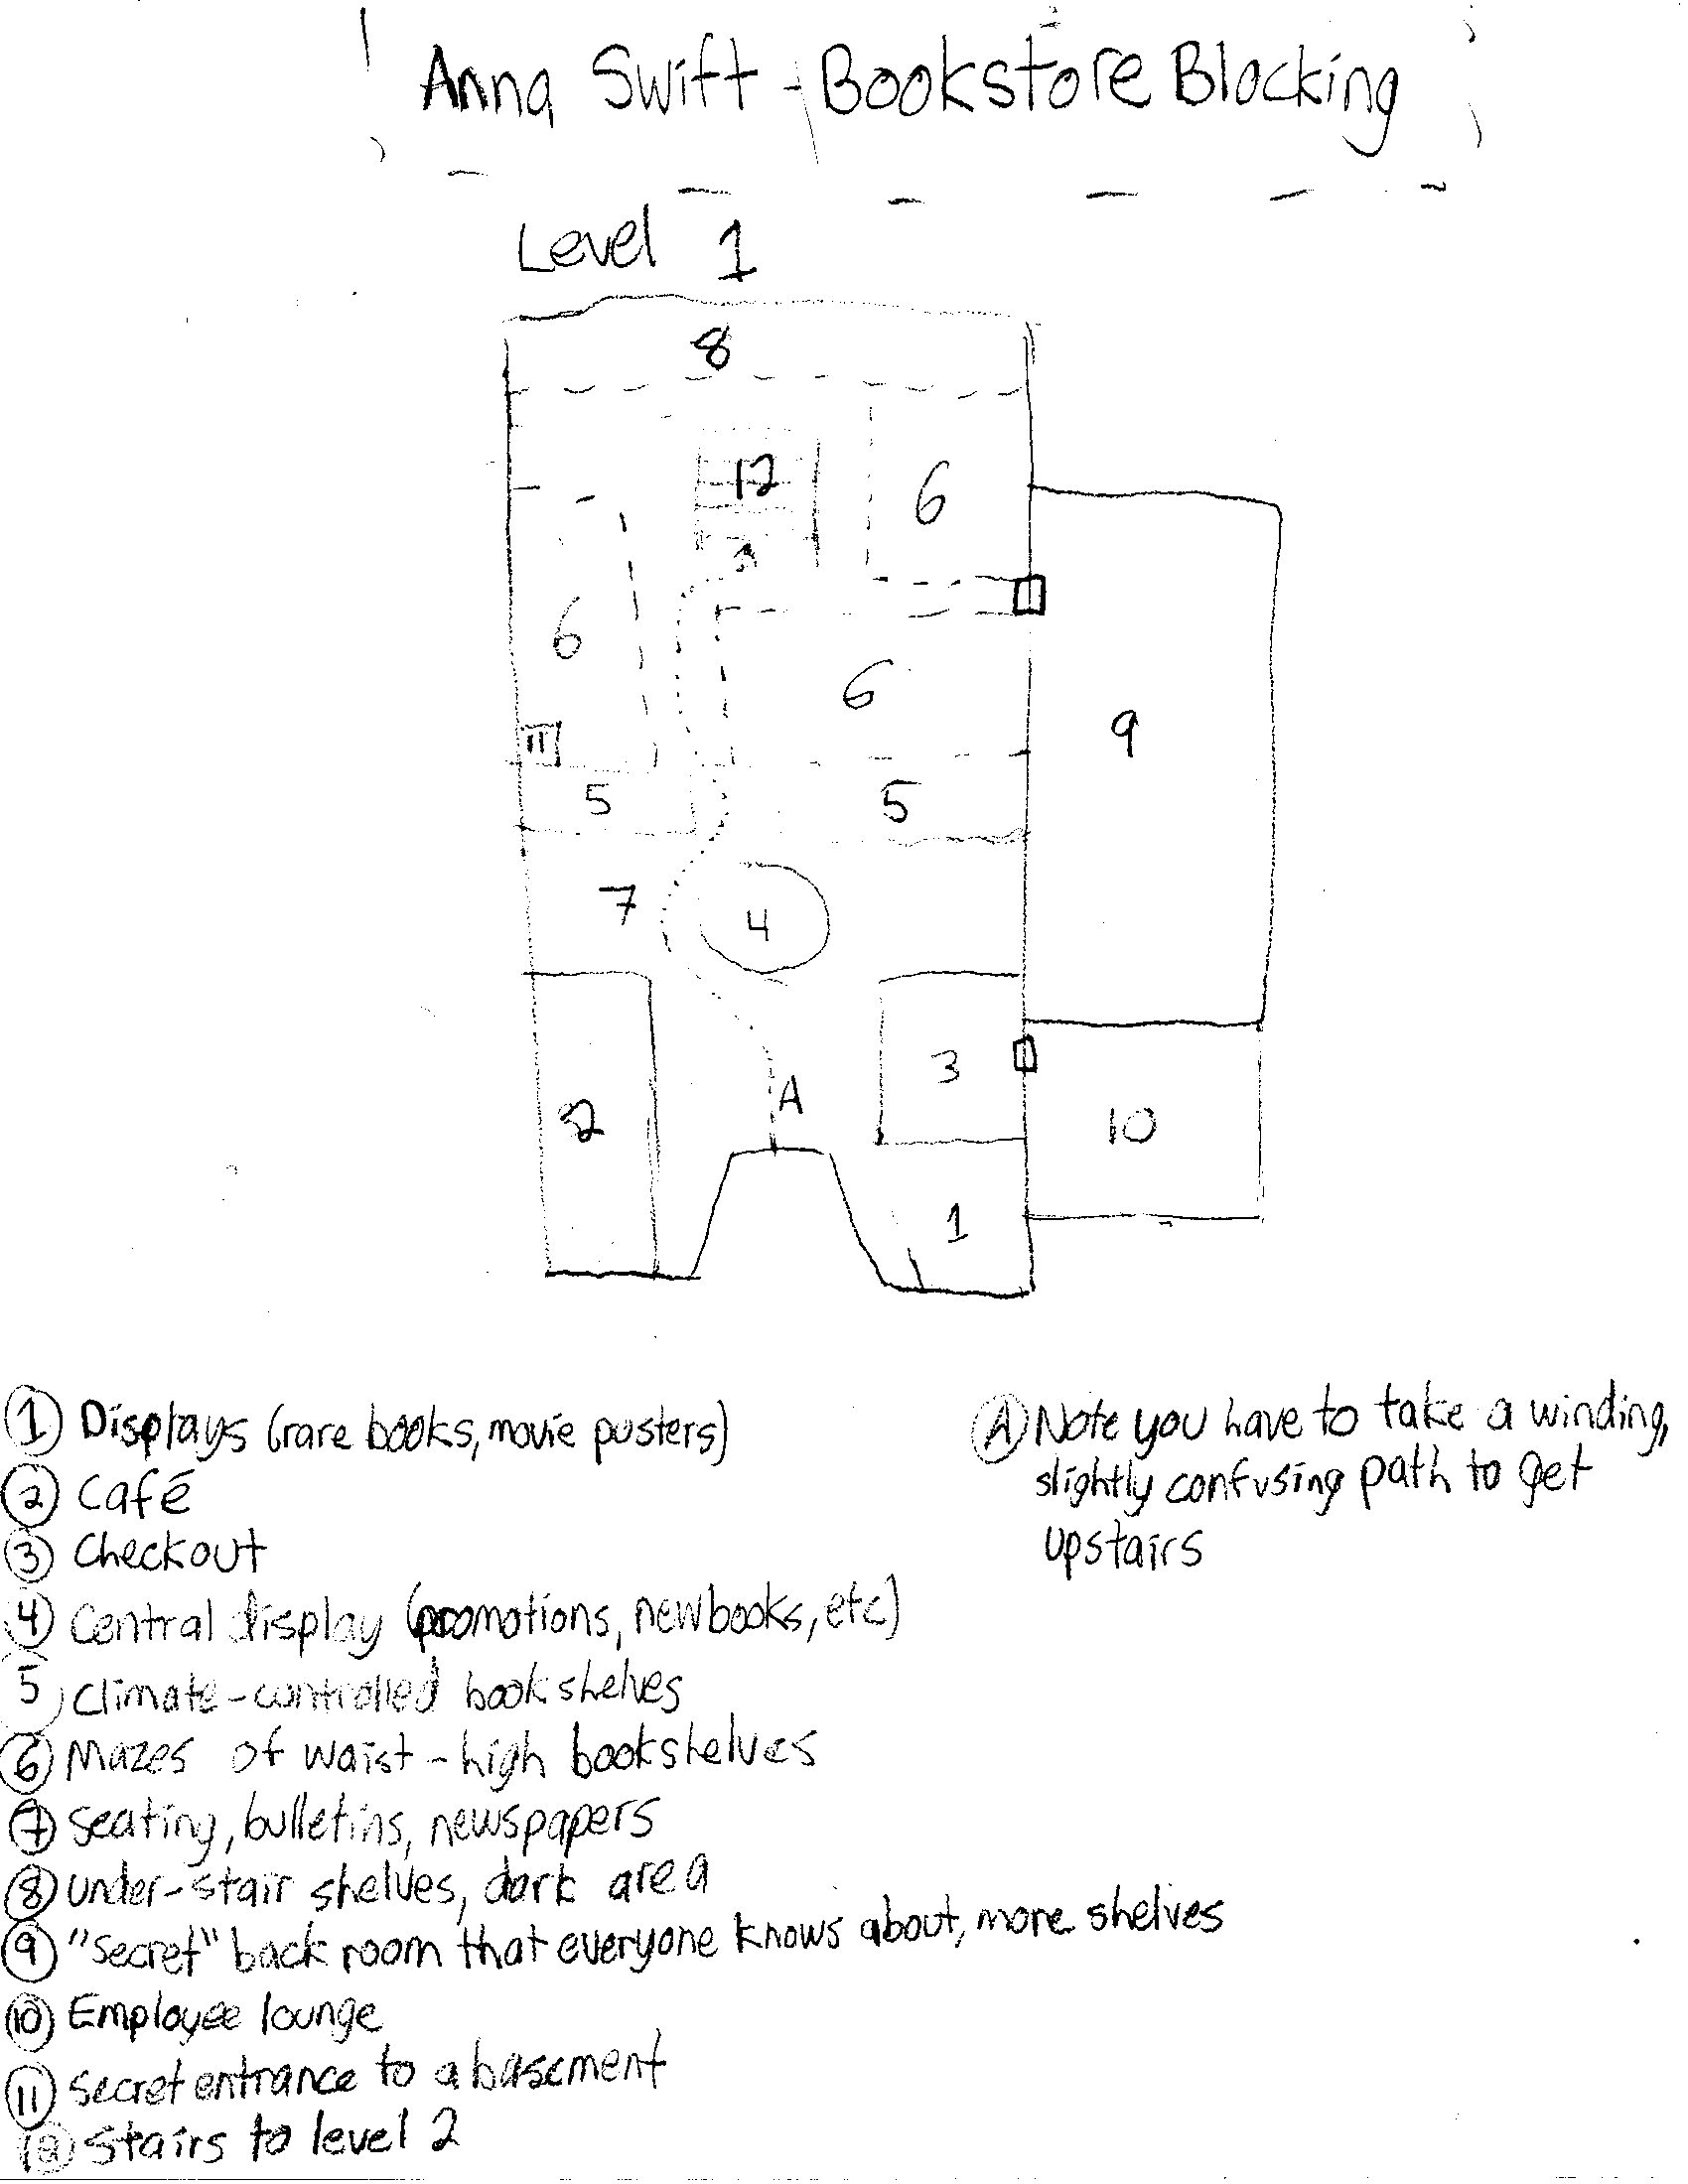 Anna Swift - Bookstore Blocking
Level 1
8
12
6
6
6
9
11
5
5
7
4
3
A
2
10
1
① Displays (rare books, movie pusters)
② Café
③ Checkout
④ Central display (promotions, new books, etc)
5 Climate-controlled bookshelves
⑥ Mazes of waist-high bookshelves
⑦ Seating, bulletins, newspapers
⑧ Under-stair shelves, dark area
⑨ "Secret" back room that everyone knows about, more shelves
⑩ Employee lounge
⑪ Secret entrance to a basement
⑫ Stairs to level 2
Ⓐ Note you have to take a winding,
slightly confusing path to get
upstairs